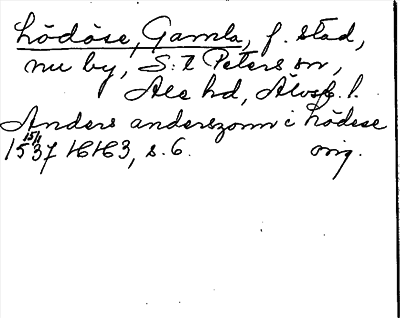 Lödöse, Gamla, f. stad,
nu by, S:t Peters sn,
Ale hd, Älvsb. l.
Anders anderszonn i Lödese
1537 15/1 HH 3, s. 6. orig.